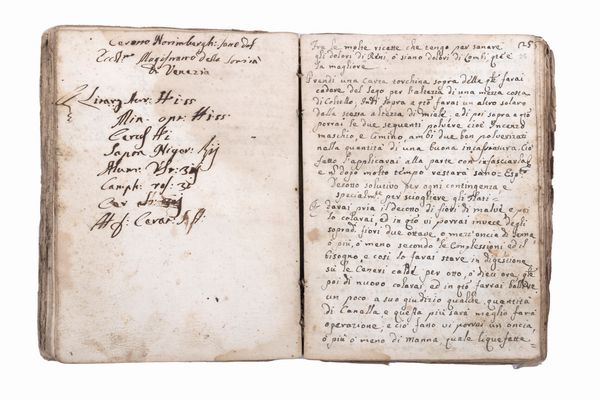 Cerotto Norimbergh: sono dell
Ecc.mo Magistrato della Sanità
di Venezia
Litarg. Aur: ℔iss
Min: opt: ℔iss
Cerus ℔i
Sapon Niger:
Alum:
Camph:
Cer
ff: Cerat: s: a:
125
Fra le molte ricette che tengo per sanare
gli dolori di Reni, o siano dolori di Lombi, q.ta è
la magliore
Prendi una Carta torchina sopra della q.le farai
cadere del sego per l'altezza di una mezza costa
di Coltello, indi sopra a q.to farai un altro solaro
della stessa altezza di miele, e di poi sopra a q.to
porrai le due seguenti polveri cioè Incenzo
maschio, e Cimino ambi due ben polverizati
nella quantità di una buona Ciò
fatto l'applicarai alla parte con infasciarla
e n dopo molto tempo restarà sano
desotto solutivo per ogni contingenza e
specialm.te per sciogliere gli flati
Farai pria il decotto di fiori di malve, e poi
lo colarai ed in q.to vi porrai invece degli
soprad. fiori due ottave, o mezz'oncia di Senna,
o più, o meno secondo le Complessioni ed il
bisogno, e così lo farai stare in digestione
sù le Ceneri calde per otto, o dieci ore q.le
poi di nuovo colarai, ed in q.to farrai bollire
un poco a suo giudizio qualche quantità
di Canella e questa più sarà meglio farà
operazione, e ciò fatto vi porrai un oncia,
o più o meno di manna quale liquefatta